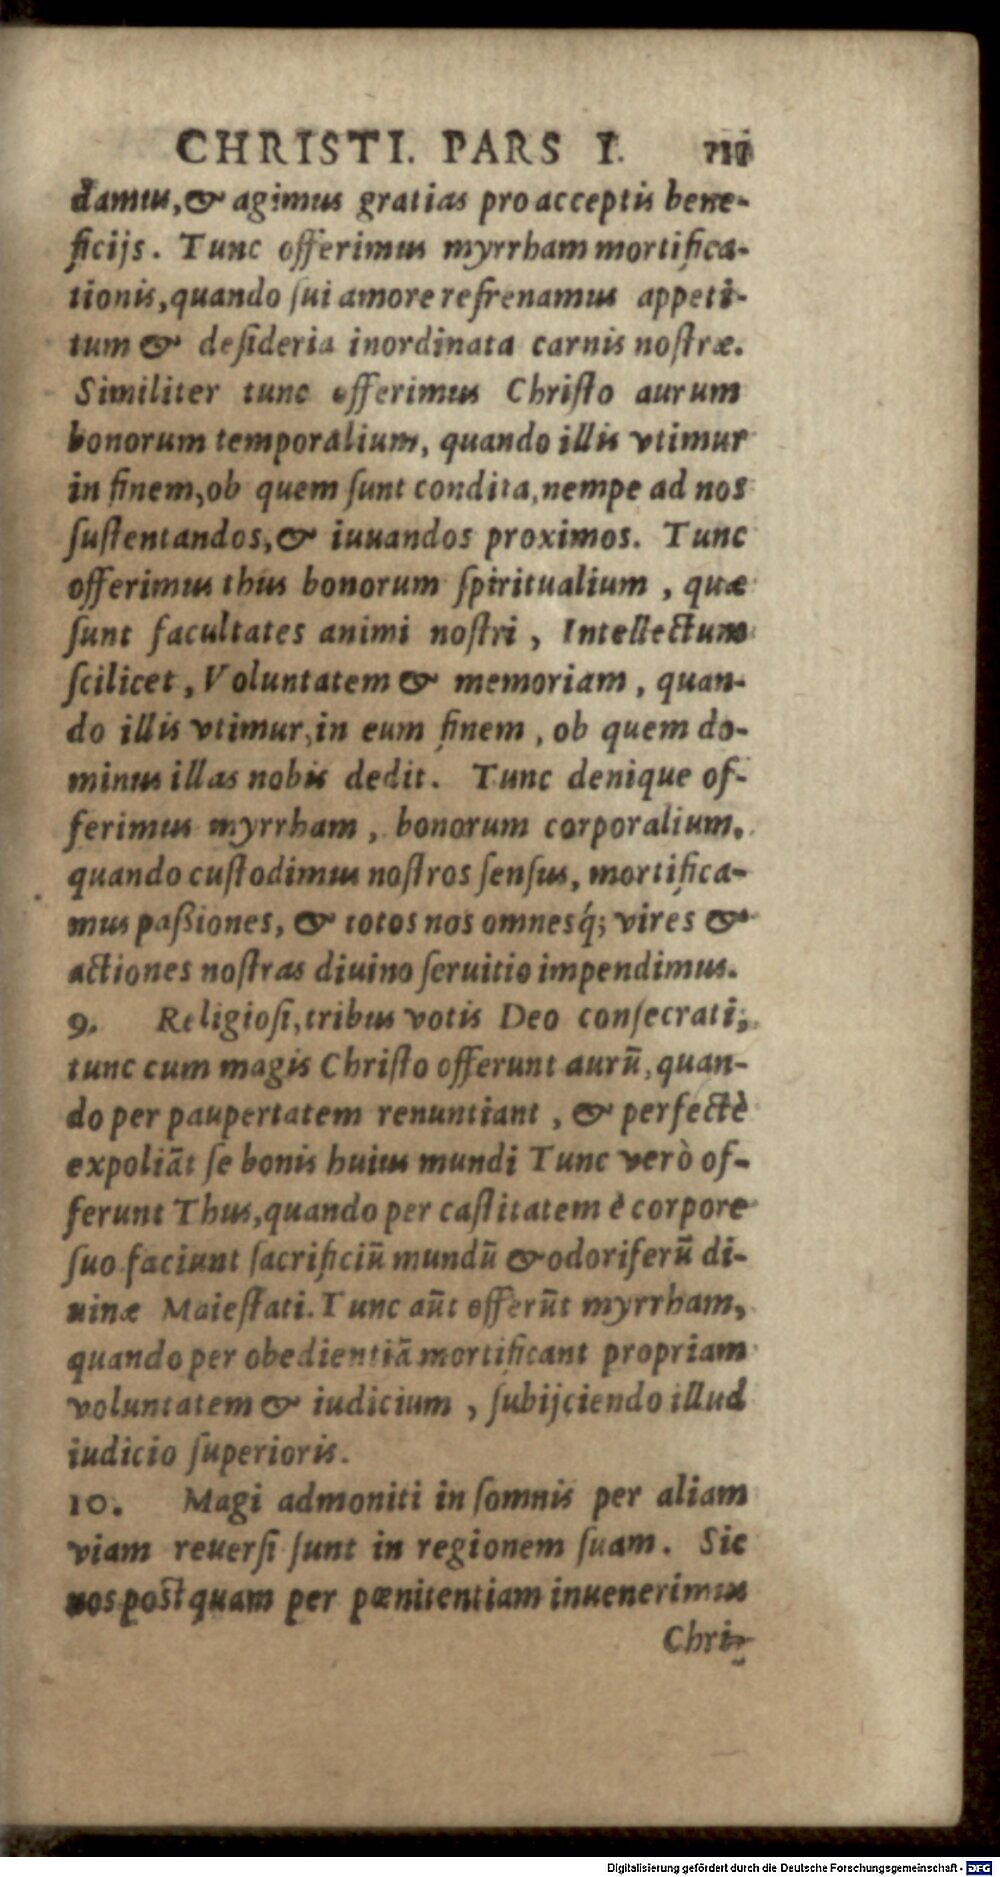 CHRISTI. PARS I.
damus, & agimus gratias pro acceptis bene-
ficijs. Tunc offerimus myrrham mortifica-
tionis, quando sui amore refrenamus appeti-
tum & desideria inordinata carnis nostræ.
Similiter tunc offerimus Christo aurum
bonorum temporalium, quando illis vtimur
in finem, ob quem sunt condita, nempe ad nos
sustentandos, & iuuandos proximos. Tunc
offerimus thus bonorum spiritualium, quæ
sunt facultates animi nostri, Intellectum
scilicet, Voluntatem & memoriam, quan-
do illis vtimur, in eum finem, ob quem do-
minus illas nobis dedit. Tunc denique of-
ferimus myrrham, bonorum corporalium,
quando custodimus nostros sensus, mortifica-
mus paßiones, & totos nos omnesq́; vires &
actiones nostras diuino seruitio impendimus.
9. Religiosi, tribus votis Deo consecrati,
tunc cum magis Christo offerunt aurū, quan-
do per paupertatem renuntiant, & perfectè
expoliāt se bonis huius mundi Tunc verò of-
ferunt Thus, quando per castitatem è corpore
suo faciunt sacrificiū mundū & odoriferū di-
uinæ Maiestati. Tunc aūt offerūt myrrham,
quando per obedientiā mortificant propriam
voluntatem & iudicium, subijciendo illud
iudicio superioris.
10. Magi admoniti in somnis per aliam
viam reuersi sunt in regionem suam. Sic
nos postquam per pœnitentiam inuenerimus
Chri-
Digitalisierung gefördert durch die Deutsche Forschungsgemeinschaft - DFG